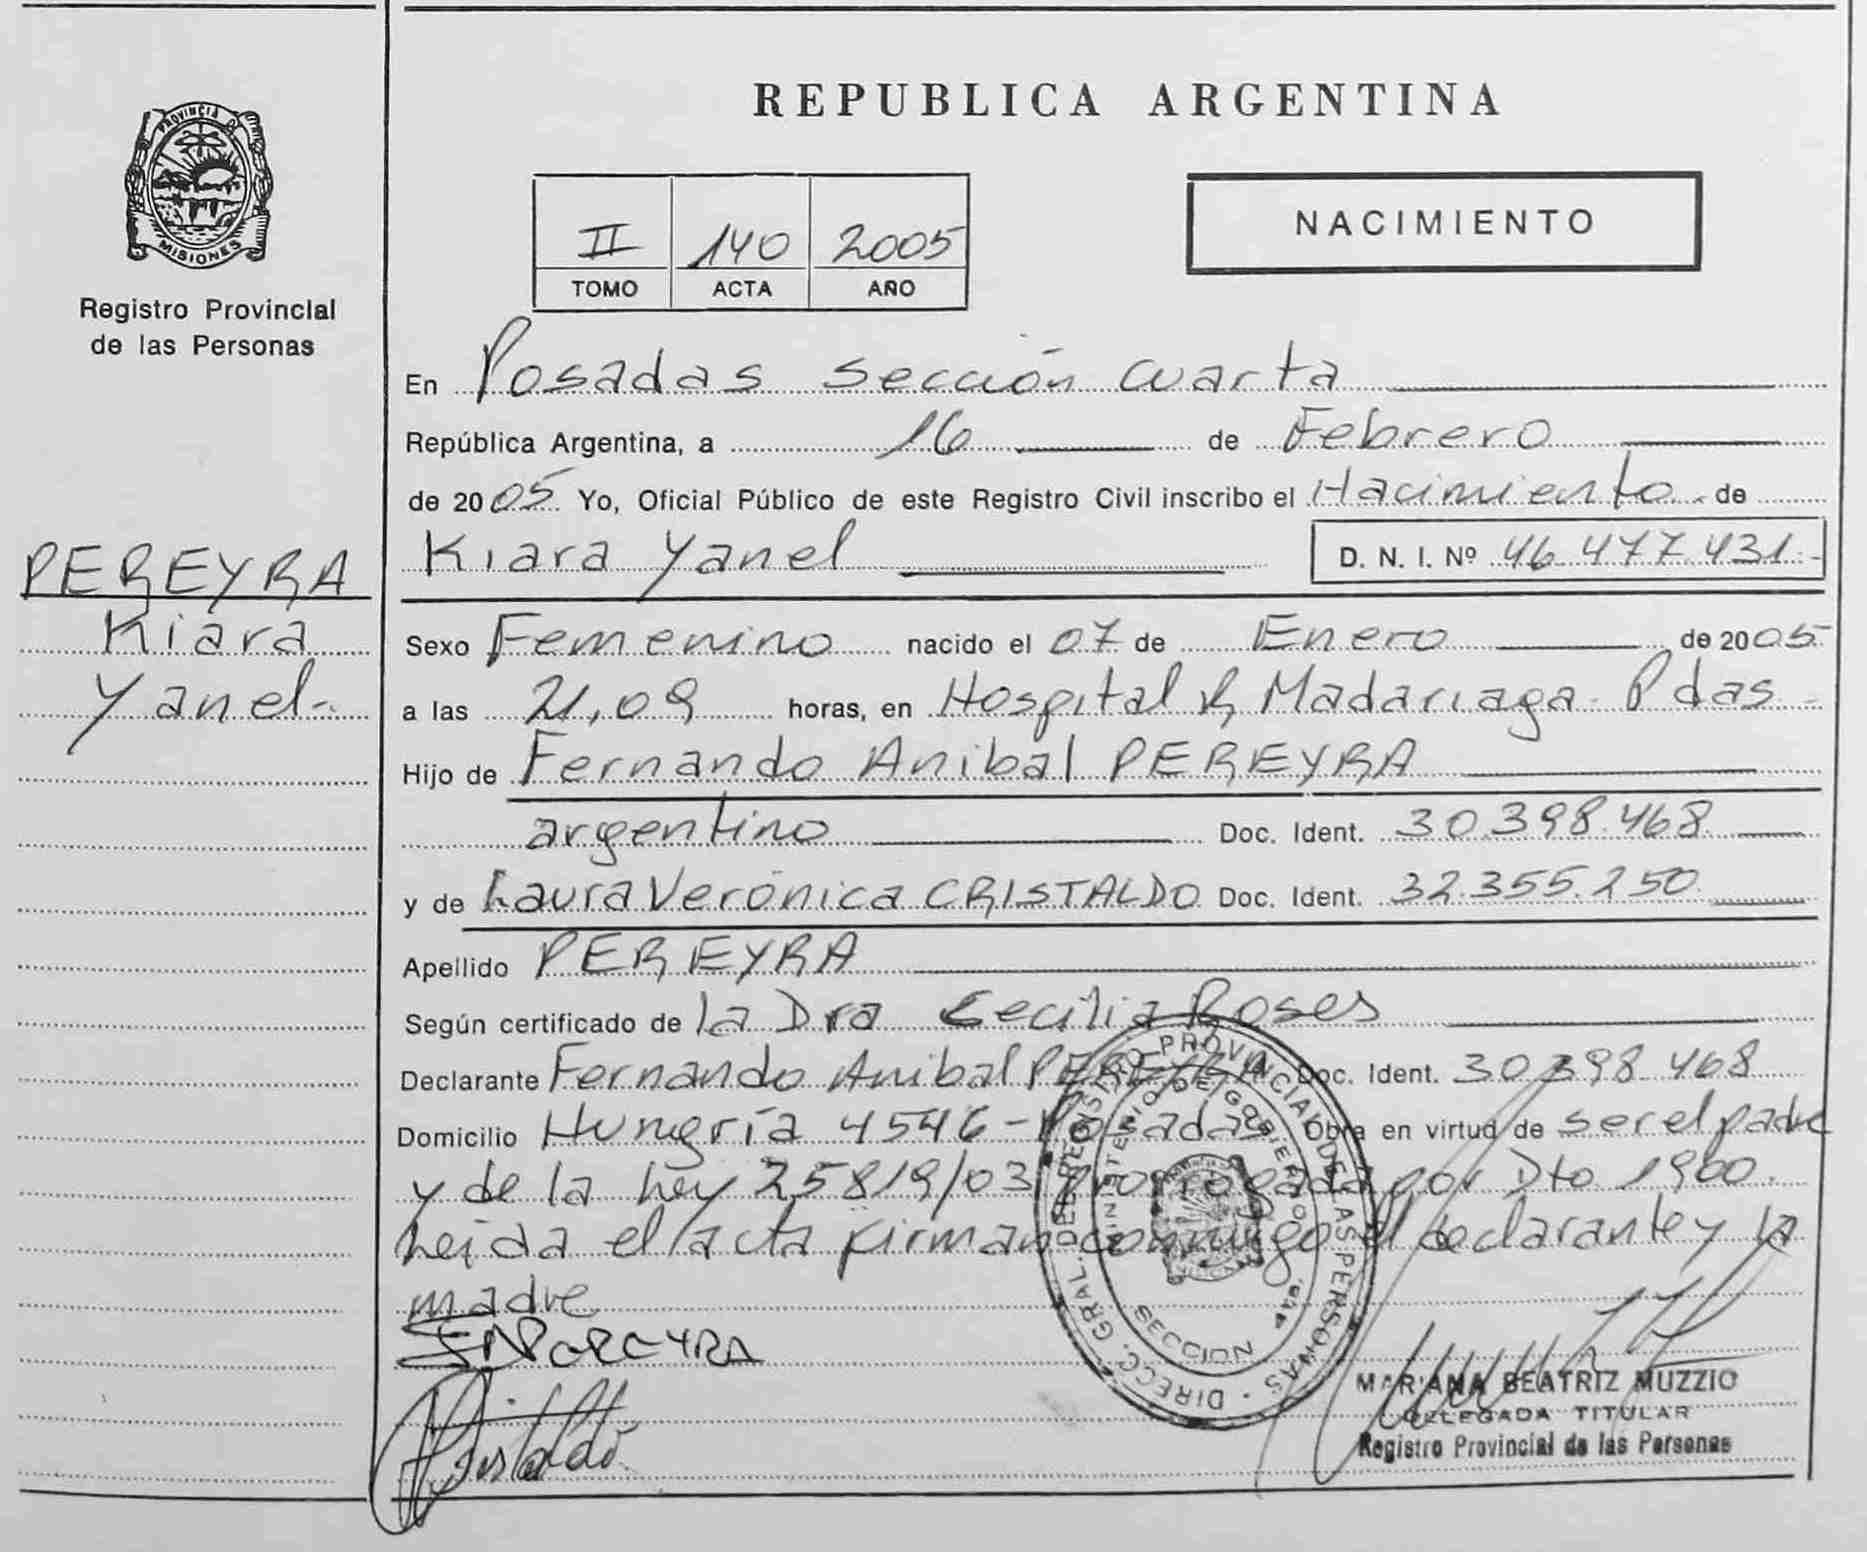 PROVINCIA D
MISIONES
Registro Provincial
de las Personas
PEREYRA
Kiara
Yanel.
REPUBLICA ARGENTINA
II 140 2005
TOMO ACTA AÑO
NACIMIENTO
En Posadas sección cuarta
República Argentina, a 16 de Febrero
de 2005 Yo, Oficial Público de este Registro Civil inscribo el Nacimiento de
Kiara Yanel D. N. I. Nº 46.477.431.-
Sexo Femenino nacido el 07 de Enero de 2005.
a las 21,09 horas, en Hospital R, Madariaga- Pdas-
Hijo de Fernando Anibal PEREYRA
argentino Doc. Ident. 30.398.468
y de Laura Verónica CRISTALDO Doc. Ident. 32.355.250
Apellido PEREYRA
Según certificado de la Dra Cecilia Roses
Declarante Fernando Anibal PEREYRA Doc. Ident. 30.398.468
Domicilio Hungría 4546-Posadas Obra en virtud de ser el padre
y de la Ley 25819/03 prorrogada por Dto 1900.
Leída el acta firman conmigo el declarante y la
madre
PEREYRA
Cristaldo
DIRECC. GRAL. DEL REGISTRO PROVINCIAL DE LAS PERSONAS
MINISTERIO DE GOBIERNO
SECCION 4ta.
MARIANA BEATRIZ MUZZIO
DELEGADA TITULAR
Registro Provincial de las Personas